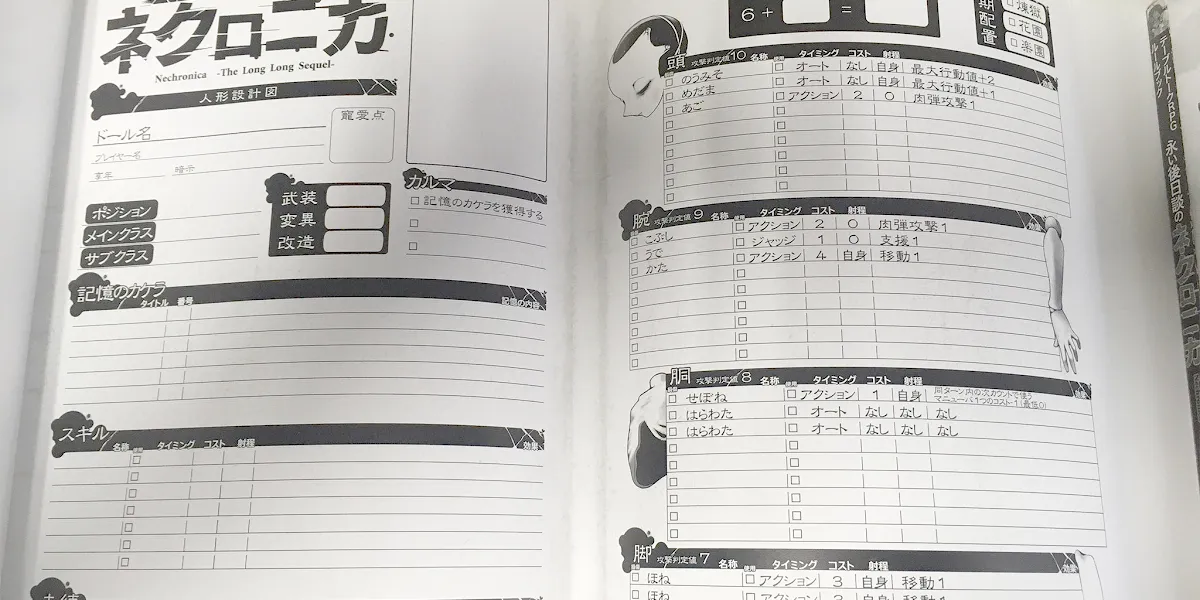 ネクロニカ
Nechronica -The Long Long Sequel-
人形設計図
ドール名
プレイヤー名
享年
暗示
寵愛点
ポジション
メインクラス
サブクラス
武装
変異
改造
カルマ
□ 記憶のカケラを獲得する
□
□
記憶のカケラ
タイトル 番号 記憶の内容
スキル
名称 使用 タイミング コスト 射程 効果
6+ =
期配置
□煉獄
□花園
□楽園
頭 攻撃判定値10 名称 使用 タイミング コスト 射程 効果
□ のうみそ □ オート なし 自身 最大行動値+2
□ めだま □ オート なし 自身 最大行動値+1
□ あご □ アクション 2 0 肉弾攻撃1
腕 攻撃判定値9 名称 使用 タイミング コスト 射程 効果
□ こぶし □ アクション 2 0 肉弾攻撃1
□ うで □ ジャッジ 1 0 支援1
□ かた □ アクション 4 自身 移動1
胴 攻撃判定値8 名称 使用 タイミング コスト 射程 効果
□ せぼね □ アクション 1 自身 同ターン内の次カウントで使うマニューバ1つのコスト-1(最低0)
□ はらわた □ オート なし なし なし
□ はらわた □ オート なし なし なし
脚 攻撃判定値7 名称 使用 タイミング コスト 射程 効果
□ ほね □ アクション 3 自身 移動1
□ ほね □ アクション 3 自身 移動1
テーブルトークRPG 永い後日談のネクロニカ
ルールブック